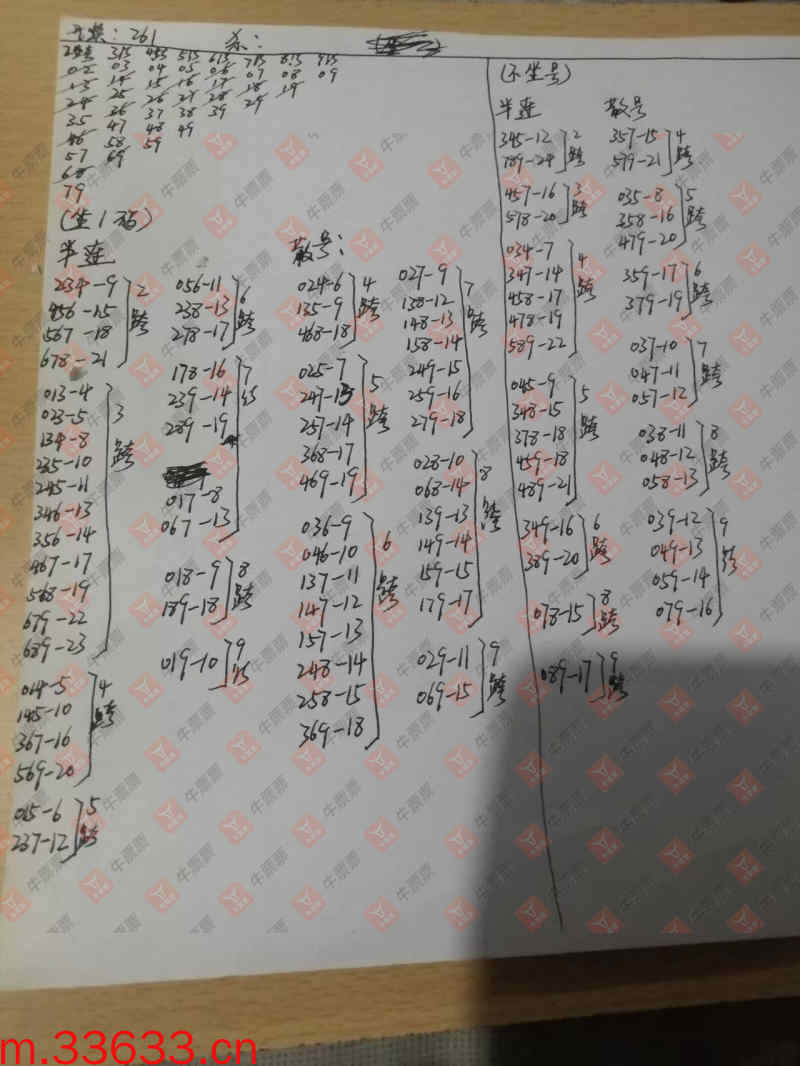 开奖:261 杀:
03 04 05 06 07 08 09
79
(坐1码)
半连
234-9
456-15
567-18
678-21
2跨
013-4
023-5
134-8
235-10
245-11
346-13
356-14
467-17
568-19
679-22
689-23
3跨
014-5
145-10
367-16
569-20
4跨
015-6
237-12
5跨
056-11
238-13
278-17
6跨
178-16
239-14
289-19
017-8
067-13
7跨
018-9
189-18
8跨
019-10
9跨
散号:
024-6
135-9
468-18
4跨
025-7
247-13
257-14
368-17
469-19
5跨
036-9
046-10
137-11
147-12
157-13
248-14
258-15
369-18
6跨
027-9
138-12
148-13
158-14
249-15
259-16
279-18
7跨
028-10
068-14
139-13
149-14
159-15
179-17
8跨
029-11
069-15
9跨
(不坐号)
半连
345-12
789-24
2跨
457-16
578-20
3跨
034-7
347-14
458-17
478-19
589-22
4跨
045-9
348-15
378-18
459-18
489-21
5跨
349-16
389-20
6跨
078-15
8跨
089-17
9跨
散号
357-15
579-21
4跨
035-8
358-16
479-20
5跨
359-17
379-19
6跨
037-10
047-11
057-12
7跨
038-11
048-12
058-13
8跨
039-12
049-13
059-14
079-16
9跨
牛票票
m.33633.cn